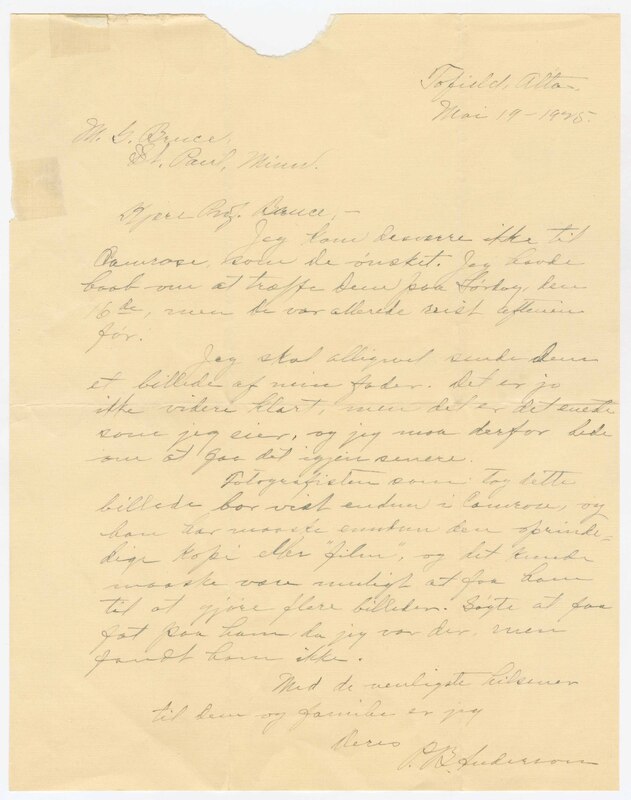 Tofield, Alta.
Mai 19 - 1925.
M. G. Bruce,
St. Paul, Minn.
Kjere Prof. Bruce, -
Jeg kom desverre ikke til
Camrose, som De ønsket. Jeg havde
haab om at træffe Dem paa Lørdag, den
16de, men De var allerede reist aftenen
før.
Jeg skal alligevel sende Dem
et billede af min fader. Det er jo
ikke videre klart, men det er det eneste
som jeg eier, og jeg maa derfor bede
om at faa det igjen senere.
Fotografisten som tog dette
billede bor vist endnu i Camrose, og
han har maaske endnu den oprinde=
lige kopi eller "film", og det kunde
maaske være muligt at faa ham
til at gjøre flere billeder. Søgte at faa
fat paa ham da jeg var der, men
fandt ham ikke.
Med de venligste hilsener
til Dem og familie er jeg
Deres
P. B. Anderson